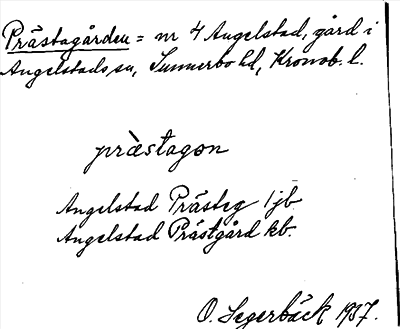 Prästagården = nr 4 Angelstad, gård i
Angelstads sn, Sunnerbo hd, Kronob. l.
prästagon
Angelstad Prästeg 1 jb
Angelstad Prästgård kb.
O. Segerbäck 1937.